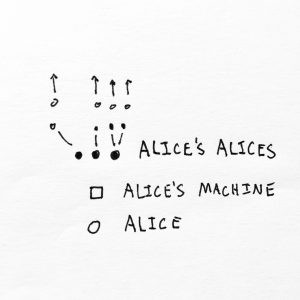 ALICE'S ALICES
ALICE'S MACHINE
ALICE